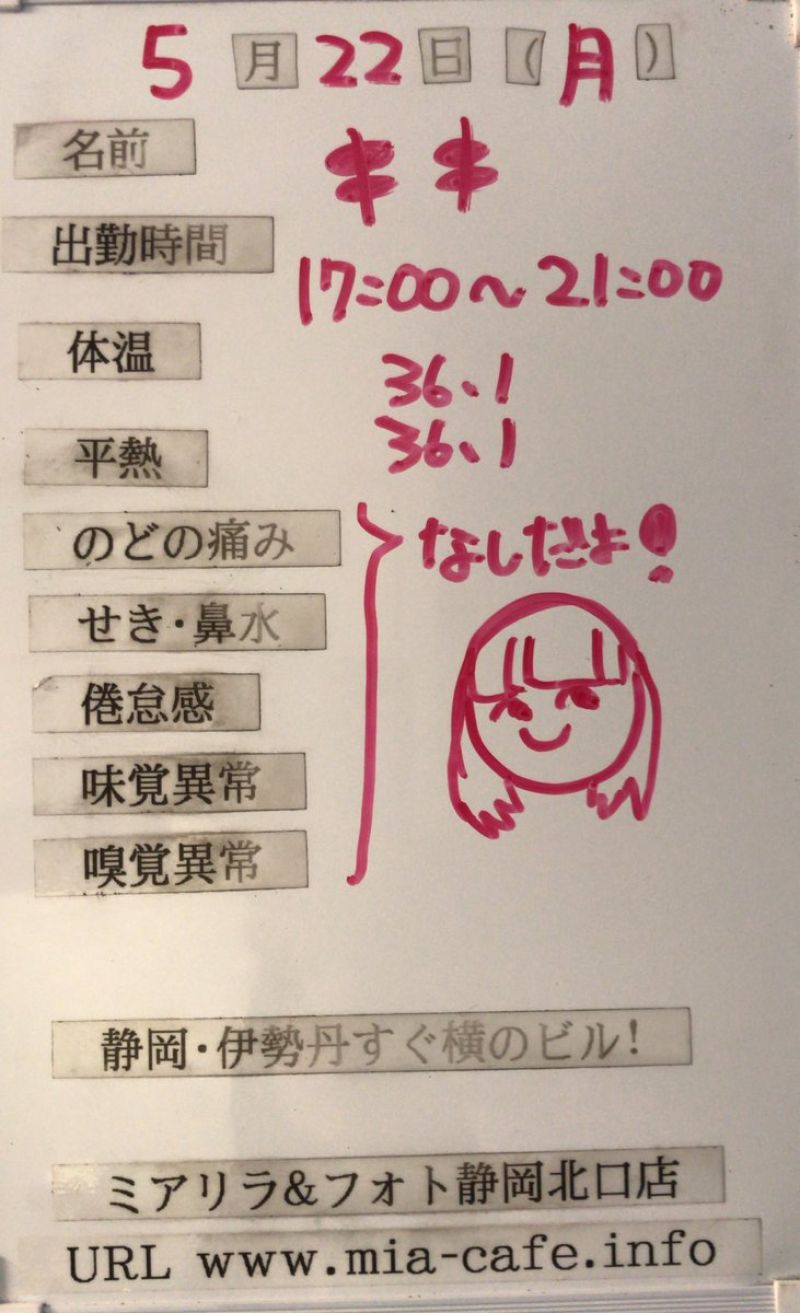 5月22日(月)
名前 キキ
出勤時間 17:00～21:00
体温 36.1
平熱 36.1
のどの痛み なしだよ!
せき・鼻水
倦怠感
味覚異常
嗅覚異常
静岡・伊勢丹すぐ横のビル!
ミアリラ&フォト静岡北口店
URL www.mia-cafe.info